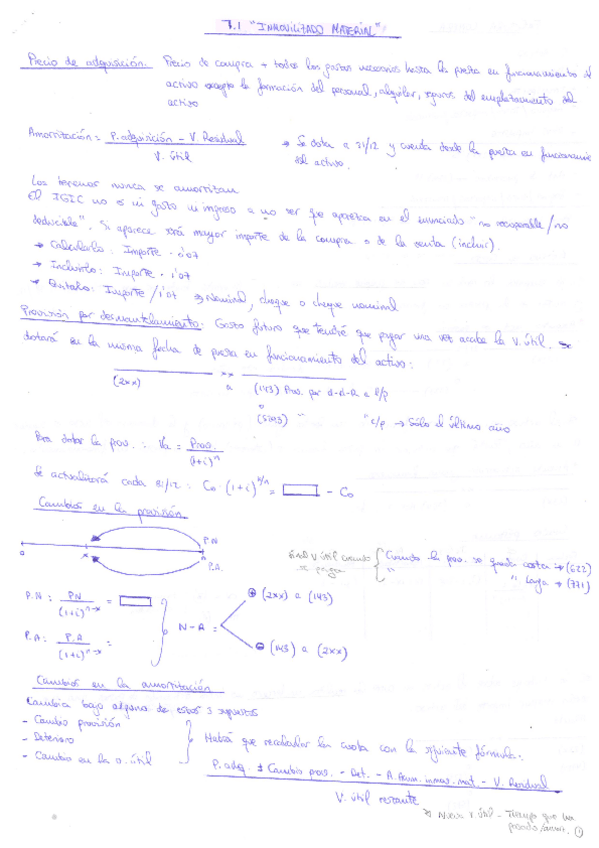 7.1 "INMOVILIZADO MATERIAL"
Precio de adquisición. Precio de compra + todos los gastos necesarios hasta la puesta en funcionamiento del
activo excepto la formación del personal, alquiler, seguros del emplazamiento del
activo
Amortización = P. adquisición - V. Residual / V. útil → Se dota a 31/12 y cuenta desde la puesta en funcionamiento
del activo.
Los terrenos nunca se amortizan
El IGIC no es ni gasto ni ingreso a no ser que aparezca en el enunciado "no recuperable/no
deducible". Si aparece será mayor importe de la compra o de la venta (incluir).
→ Calcularlo: Importe · 0'07
→ Incluirlo: Importe · 1'07
→ Quitarlo: Importe / 1'07 → Nominal, cheque o cheque nominal
Provisión por desmantelamiento: Gasto futuro que tendré que pagar una vez acabe la V. útil. Se
dotará en la misma fecha de puesta en funcionamiento del activo:
xx
(2xx) a (143) Prov. por d-d-R a l/p
o
(5293) " " c/p → Sólo el último año
Para dotar la prov.: Va = Prov. / (1+i)^n
Se actualizará cada 31/12: Co · (1+i) = - Co
Cambios en la provisión
P.N
0 x n
P.A.
Final V. útil cuando Cuando la prov. se queda corta → (622)
se paga " " larga → (771)
P.N: PN / (1+i)^n→ =
P.A: P.A / (1+i)^n→ =
N-A: ⊕ (2xx) a (143)
⊖ (143) a (2xx)
Cambios en la amortización
Cambia bajo alguno de estos 3 supuestos
- Cambio provisión
- Deterioro
- Cambio en la v. útil
Habrá que recalcular la cuota con la siguiente fórmula:
P. adq. ± Cambio prov. - Det. - A. Acum. inmov. mat - V. Residual
V. útil restante
→ Nueva V. útil - Tiempo que ha
pasado